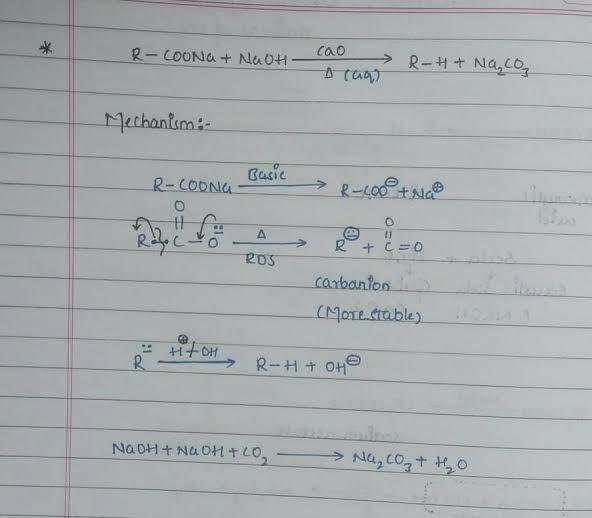 * R-COONa + NaOH —CaO / Δ (aq)→ R-H + Na₂CO₃
Mechanism:-
R-COONa —Basic→ R-COO⊖ + Na⊕
O O
R-C-O —Δ / RDS→ R⊖ + C=O
carbanion
(More stable)
R —H⊕/OH→ R-H + OH⊖
NaOH + NaOH + CO₂ → Na₂CO₃ + H₂O